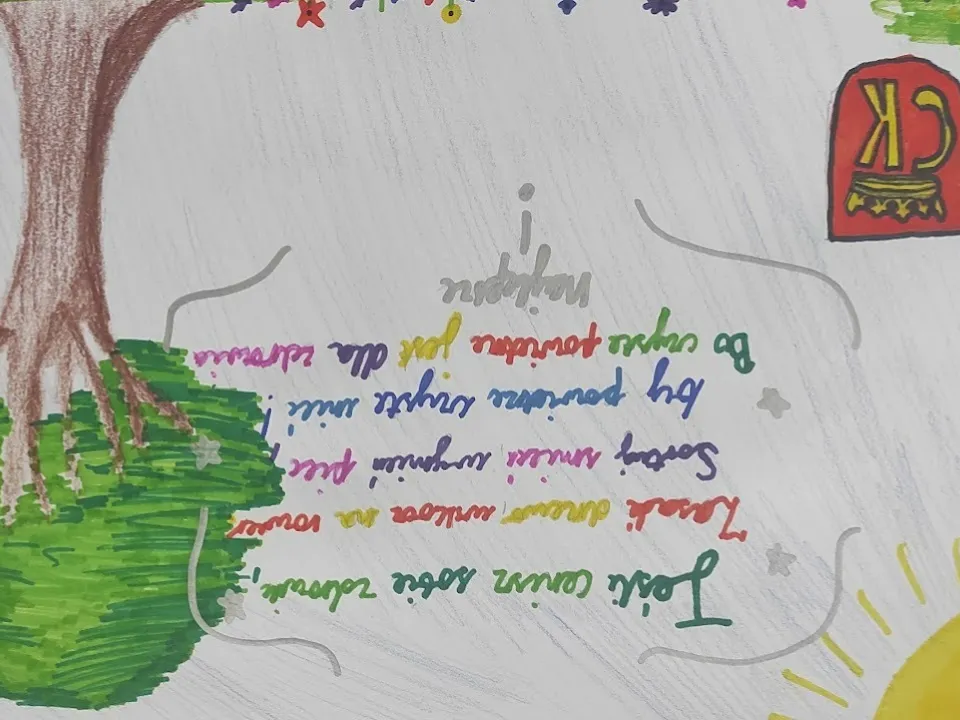 Jeśli cenisz sobie zdrowie,
Zasadź drzewo, wskocz na rower
Sortuj śmieci wymień piec,
by powietrze czyste mieć!
Bo czyste powietrze jest dla zdrowia
najlepsze
!
CK